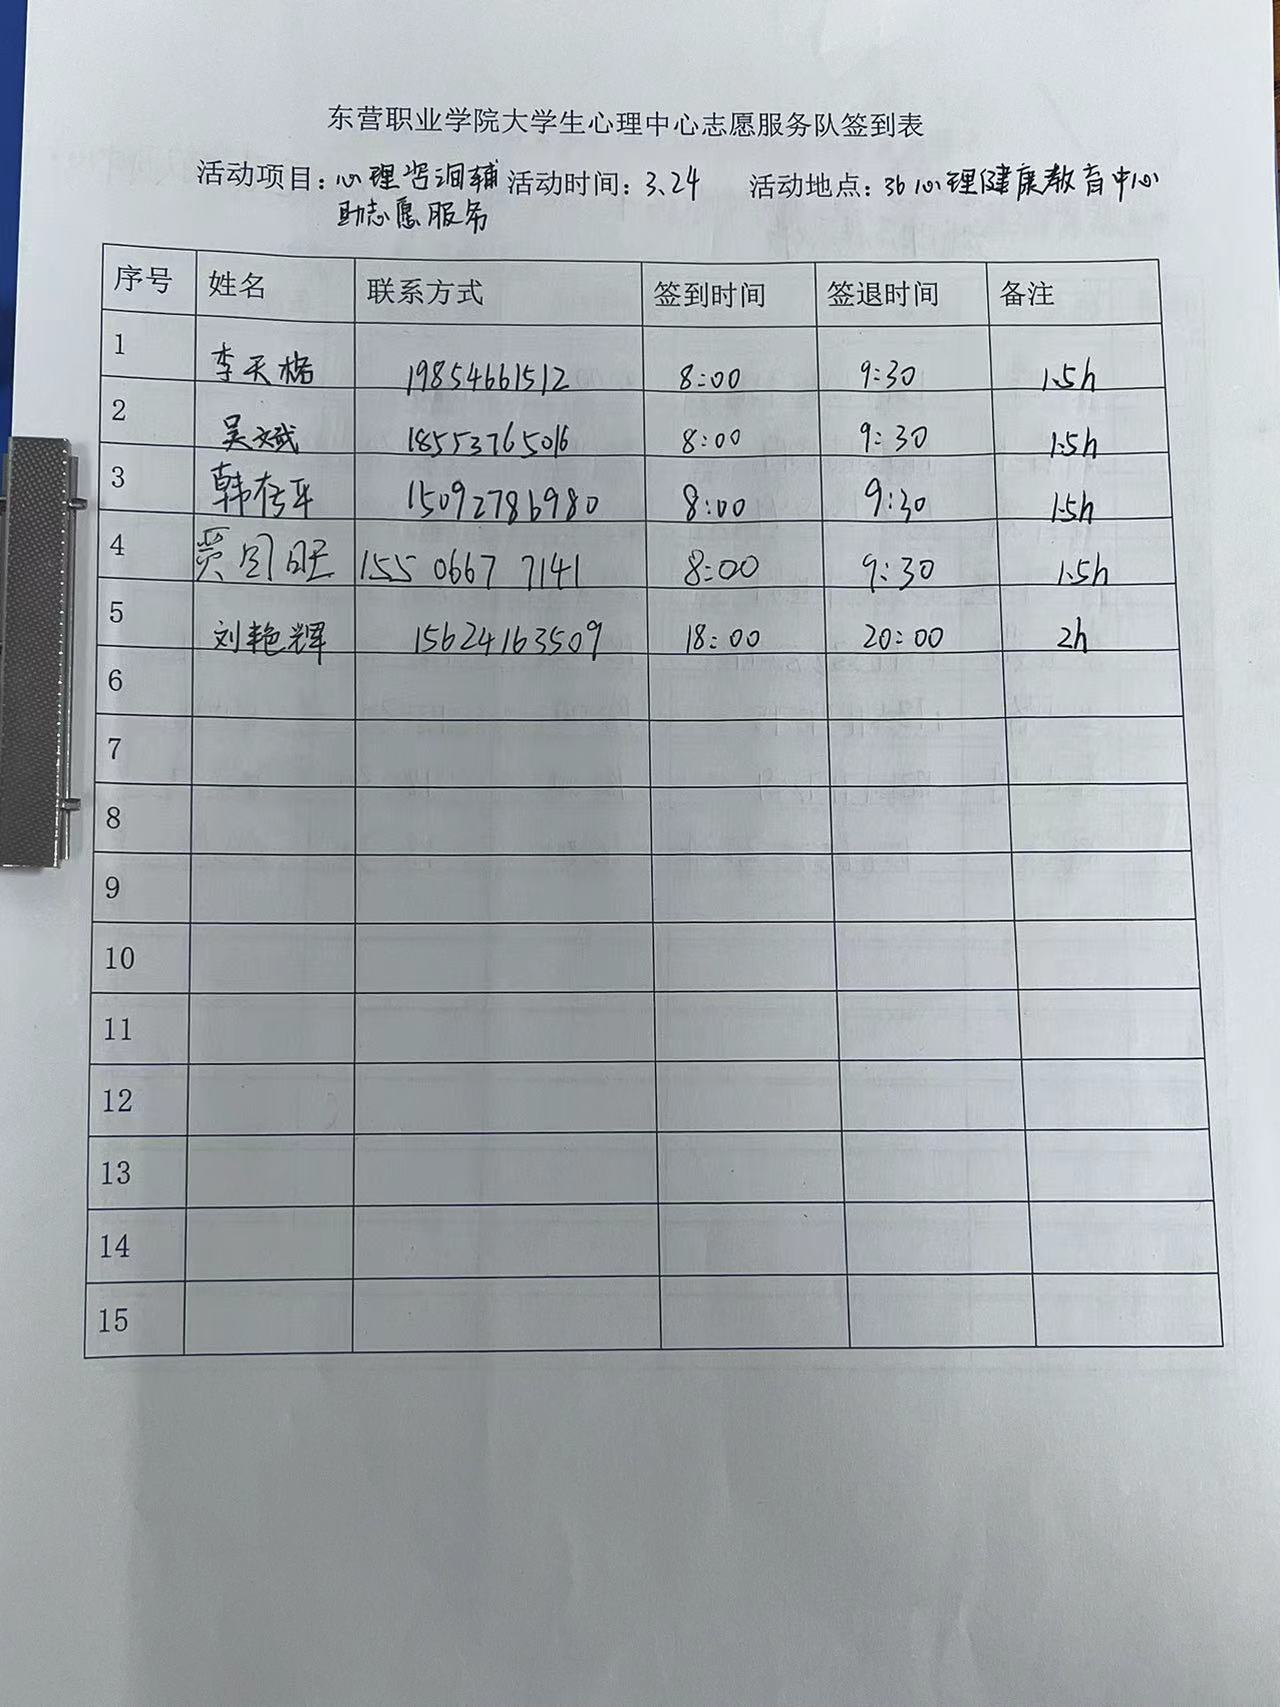 东营职业学院大学生心理中心志愿服务队签到表
活动项目：心理咨询辅 活动时间：3.24 活动地点：3b心理健康教育中心
助志愿服务
序号 姓名 联系方式 签到时间 签退时间 备注
1 李天格 19854661512 8:00 9:30 1.5h
2 吴斌 18553765016 8:00 9:30 1.5h
3 韩存平 15092786980 8:00 9:30 1.5h
4 贾 旺 155 0667 7141 8:00 9:30 1.5h
5 刘艳辉 15624163509 18:00 20:00 2h
6
7
8
9
10
11
12
13
14
15